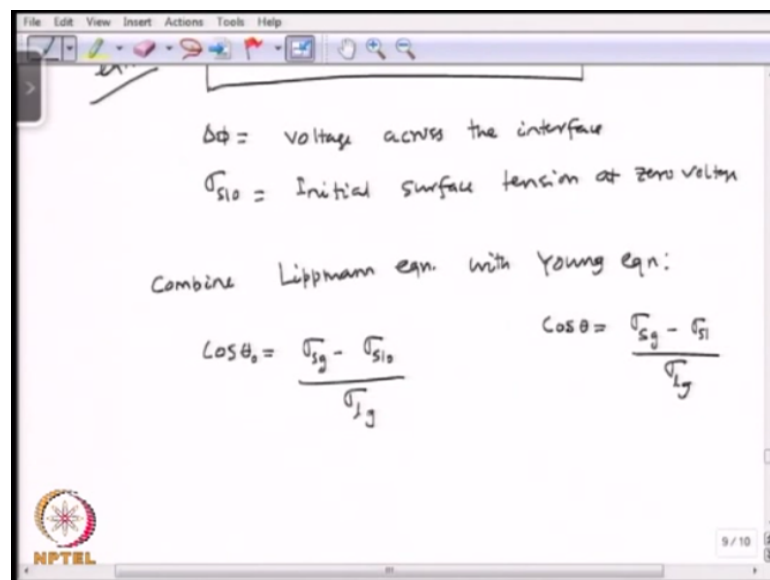 File Edit View Insert Actions Tools Help
Δφ = voltage across the interface
σ_sl0 = Initial surface tension at zero voltage
Combine Lippmann eqn. with Young eqn:
Cosθ₀ = (σ_sg - σ_sl0) / σ_lg
Cosθ = (σ_sg - σ_sl) / σ_lg
NPTEL
9 / 10